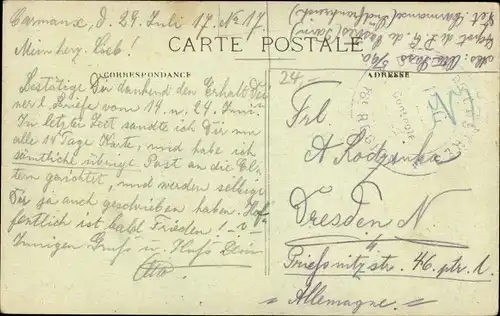 Carmaux, d. 29. Juli 17. No 17.
Mein herz. Lieb!
CARTE POSTALE
CORRESPONDANCE
ADRESSE
Bestätige Dir dankend den Erhalt Dei-
ner l. Briefe vom 14. u. 24. Juni.
In letzter Zeit sandte ich Dir nur
alle 14 Tage Karte, und hab ich
sämtliche übrige Post an die El-
tern gerichtet, und werden selbige
Dir ja auch geschrieben haben. Hof-
fentlich ist bald Frieden!
Innigen Gruß u. Kuß Dein
Otto
24.-
Frl.
A. Kodzinka
Dresden N
Prießnitzstr. 46. ptr. l.
Allemagne.
Abs: Otto
Dépôt de P.G. de
Dét. Carmaux (Südfrankreich)
Contrôle